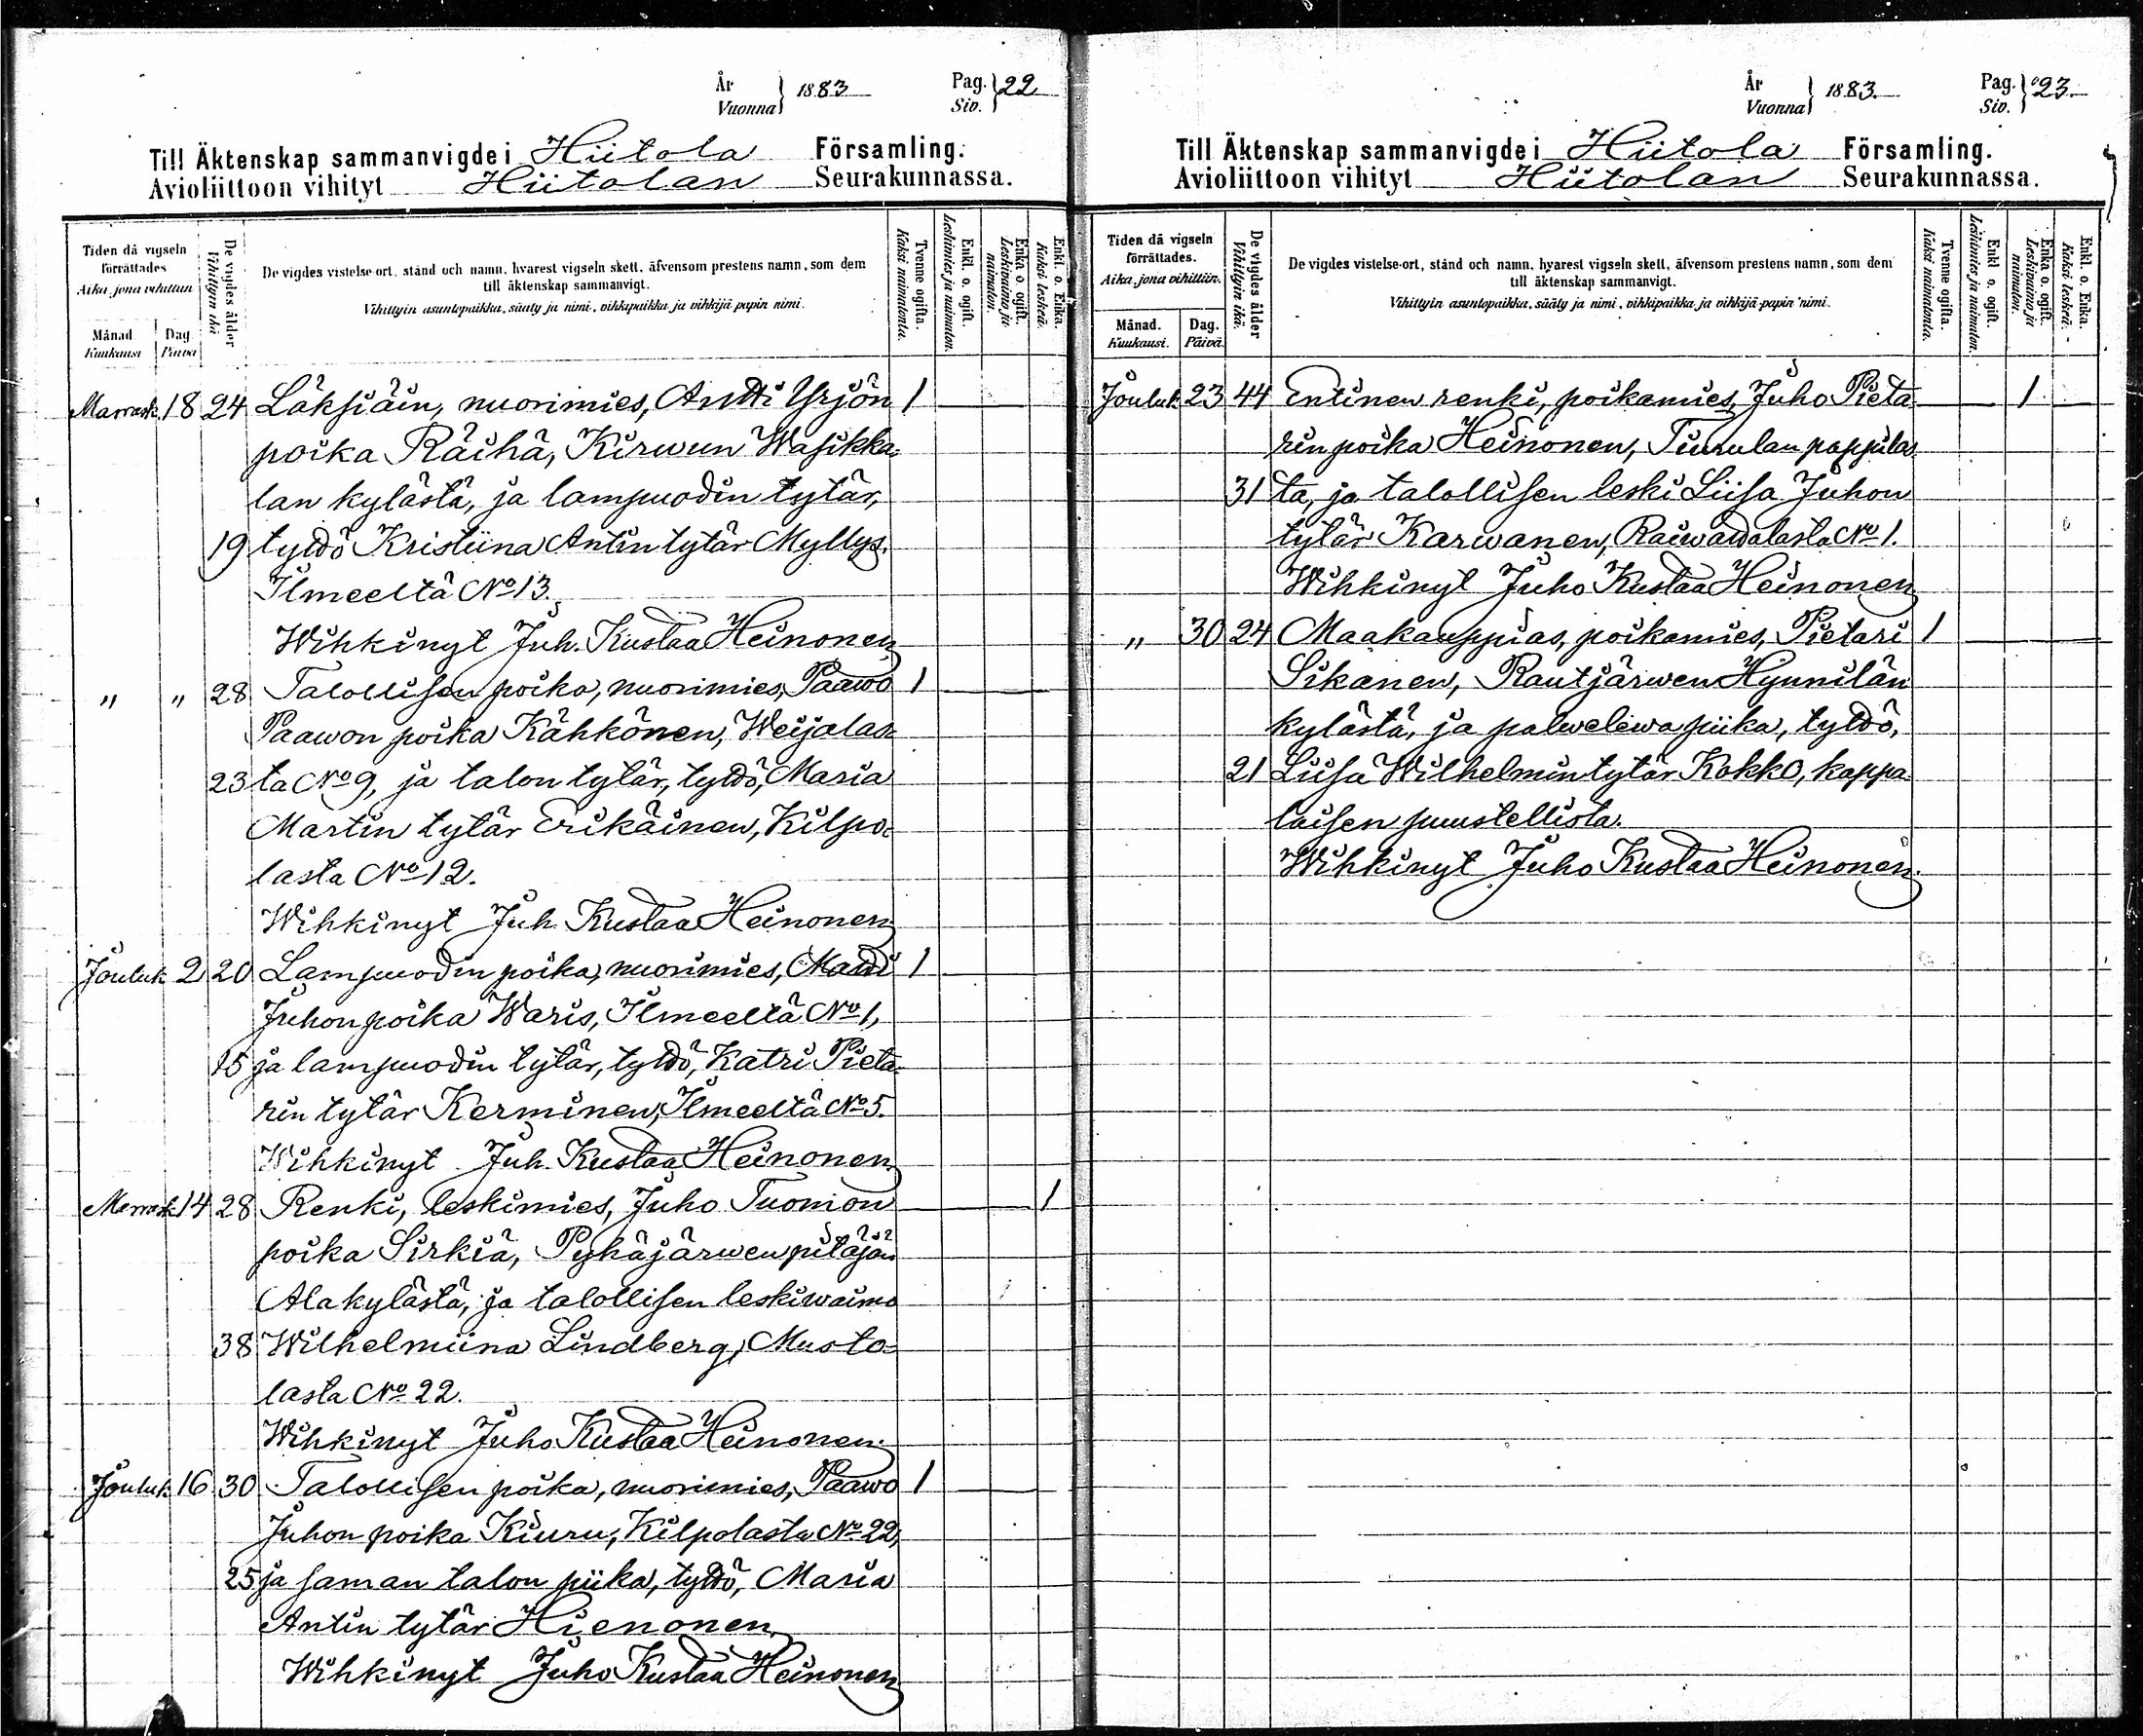 År
Vuonna } 1883
Pag.
Siv. } 22
Till Äktenskap sammanvigde i Hiitola Församling.
Avioliittoon vihityt Hiitolan Seurakunnassa.
Tiden då vigseln förrättades
Aika, jona vihittiin
Månad
Kuukausi
Dag
Päivä
De vigdes ålder
Vihittyin ikä
De vigdes vistelse-ort, stånd och namn, hvarest vigseln skett, äfvensom prestens namn, som dem
till äktenskap sammanvigt.
Vihittyin asuntopaikka, sääty ja nimi, vihkipaikka ja vihkijä-papin nimi.
Tvenne ogifta.
Kaksi naimatonta.
Enkl. o. ogift.
Leskimies ja naimaton.
Enka o. ogift.
Leskivaimo ja naimaton.
Enkl. o. Enka.
Kaksi leskeä.
Marrask. 18 24 Läksiäin, nuorimies, Antti Yrjön 1
poika Räihä, Kirwun Wasikka=
lan kylästä, ja lampuodin tytär,
19 tyttö Kristiina Antin tytär Myllys.
Ilmeeltä No 13.
Wihkinyt Juh. Kustaa Heinonen
" " 28 Talollisen poika, nuorimies, Paawo 1
Paawon poika Kähkönen, Weijalas=
23 ta No 9, ja talon tytär, tyttö, Maria
Martin tytär Erikäinen, Kilpo=
lasta No 12.
Wihkinyt Juh. Kustaa Heinonen
Jouluk. 2 20 Lampuodin poika, nuorimies, Matti 1
Juhon poika Waris, Ilmeeltä No 1,
15 ja lampuodin tytär, tyttö, Katri Pieta=
rin tytär Kerminen, Ilmeeltä No 5.
Wihkinyt Juh. Kustaa Heinonen
Marrask. 14 28 Renki, leskimies, Juho Tuomon 1
poika Sirkiä, Pyhäjärwen pitäjän
Alakylästä, ja talollisen leskiwaimo
38 Wilhelmiina Lindberg, Musto=
lasta No 22.
Wihkinyt Juho Kustaa Heinonen.
Jouluk. 16 30 Talollisen poika, nuorimies, Paawo 1
Juhon poika Kiuru, Kilpolasta No 22,
25 ja saman talon piika, tyttö, Maria
Antin tytär Hienonen.
Wihkinyt Juho Kustaa Heinonen
År
Vuonna } 1883.
Pag.
Siv. } 23.
Till Äktenskap sammanvigde i Hiitola Församling.
Avioliittoon vihityt Hiitolan Seurakunnassa.
Tiden då vigseln förrättades.
Aika, jona vihittiin.
Månad.
Kuukausi.
Dag.
Päivä.
De vigdes ålder
Vihittyin ikä.
De vigdes vistelse-ort, stånd och namn, hvarest vigseln skett, äfvensom prestens namn, som dem
till äktenskap sammanvigt.
Vihittyin asuntopaikka, sääty ja nimi, vihkipaikka ja vihkijä-papin nimi.
Tvenne ogifta.
Kaksi naimatonta.
Enkl. o. ogift.
Leskimies ja naimaton.
Enka o. ogift.
Leskivaimo ja naimaton.
Enkl. o. Enka.
Kaksi leskeä.
Jouluk. 23 44 Entinen renki, poikamies, Juho Pieta= 1
rin poika Heinonen, Tiurulan pappilas=
31 ta, ja talollisen leski Liisa Juhon
tytär Karwanen, Raiwattalasta No 1.
Wihkinyt Juho Kustaa Heinonen
" 30 24 Maakauppias, poikamies, Pietari 1
Sikanen, Rautjärwen Hynnilän
kylästä, ja palwelewa piika, tyttö,
21 Liisa Wilhelmin tytär Kokko, kappa=
laisen puustellista.
Wihkinyt Juho Kustaa Heinonen.